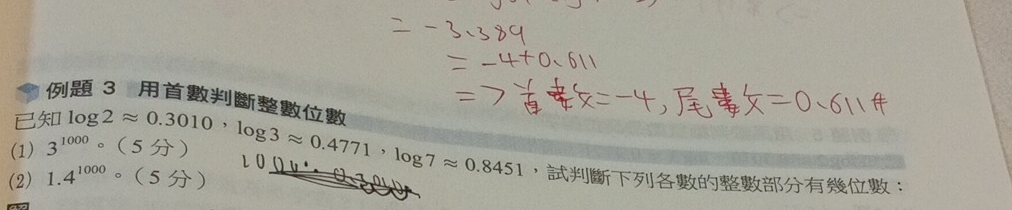 = -3.389
= -4+0.611
=> 首數=-4, 尾數=0.611#
例題 3 用首數判斷整數位數
已知 log2 ≈ 0.3010，log3 ≈ 0.4771，log7 ≈ 0.8451，試判斷下列各數的整數部分有幾位數：
(1) 3^1000。（5 分）
(2) 1.4^1000。（5 分）